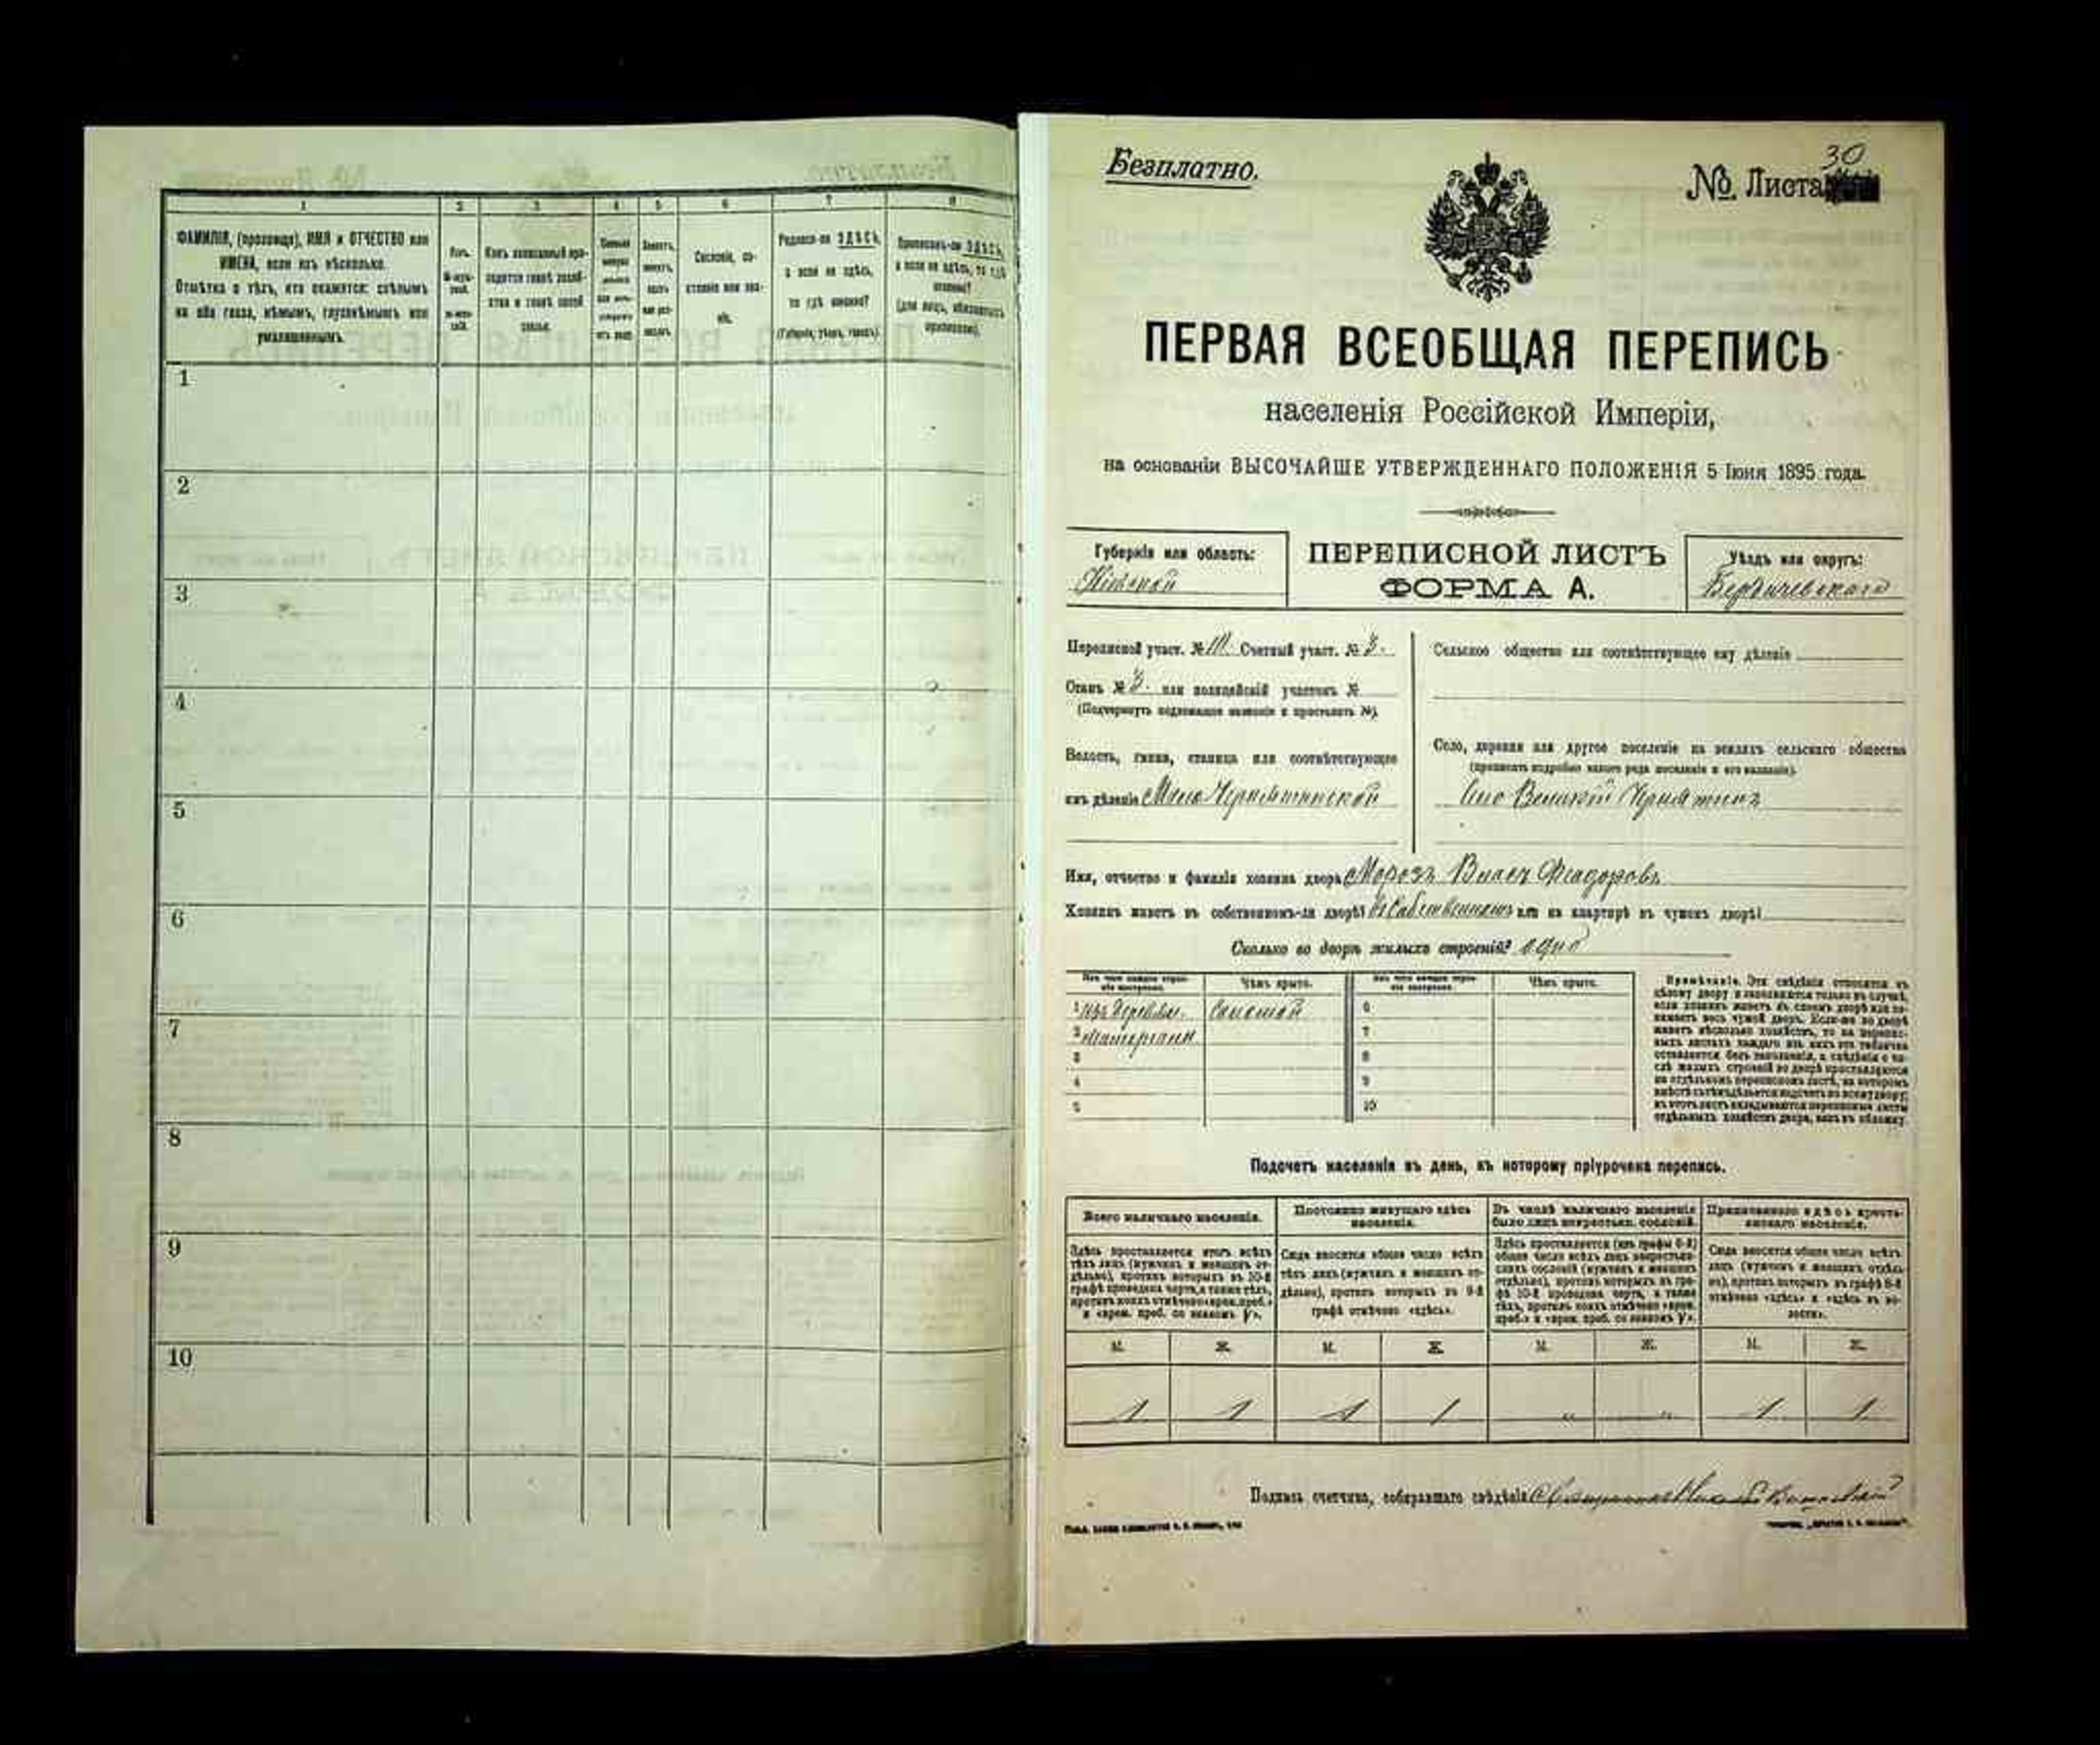 1 2 3 4 5 6 7 8
ФАМИЛІЯ, (прозвище), ИМЯ и ОТЧЕСТВО или
ИМЕНА, если ихъ нѣсколько.
Отмѣтка о тѣхъ, кто окажется: слѣпымъ
на оба глаза, нѣмымъ, глухонѣмымъ или
умалишеннымъ.
Полъ.
Какъ записанный при-
ходится главѣ хозяй-
ства и главѣ своей
семьи.
Сословіе, со-
стояніе или зва-
ніе.
Родился-ли ЗДѢСЬ,
а если не здѣсь,
то гдѣ именно?
(Губернія, уѣздъ, городъ).
Приписанъ-ли ЗДѢСЬ,
а если не здѣсь, то гдѣ
именно?
(для лицъ, обязанныхъ
припискою).
1
2
3
4
5
6
7
8
9
10
Безплатно.
30
№ Листа
ПЕРВАЯ ВСЕОБЩАЯ ПЕРЕПИСЬ
населенія Россійской Имперіи,
на основаніи ВЫСОЧАЙШЕ УТВЕРЖДЕННАГО ПОЛОЖЕНІЯ 5 Іюня 1895 года.
Губернія или область:
Кіевской
ПЕРЕПИСНОЙ ЛИСТЪ
ФОРМА А.
Уѣздъ или округъ:
Бердичевскаго
Переписной участ. № III Счетный участ. № 3.
Станъ № 3. или полицейскій участокъ №
(Подчеркнуть подлежащее названіе и проставить №).
Волость, гмина, станица или соотвѣтствующее
имъ дѣленіе Мало Чернятинской
Сельское общество или соотвѣтствующее ему дѣленіе
Село, деревня или другое поселеніе на земляхъ сельскаго общества
(прописать подробно какого рода поселеніе и его названіе).
Село Великій Чернятинъ
Имя, отчество и фамилія хозяина двора Морозъ Власъ Феодоровъ
Хозяинъ живетъ въ собственномъ-ли дворѣ? въ Собственномъ или на квартирѣ въ чужомъ дворѣ?
Сколько во дворѣ жилыхъ строеній? одно
Изъ чего каждое строе-
ніе построено.
Чѣмъ крыто.
Изъ чего каждое строе-
ніе построено.
Чѣмъ крыто.
1 изъ деревян. Соломой 6
2 7
3 8
4 9
5 10
Примѣчаніе. Эти свѣдѣнія относятся къ
цѣлому двору и заполняются только въ случаѣ,
если хозяинъ живетъ въ своемъ дворѣ или за-
нимаетъ весь чужой дворъ. Если-же во дворѣ
живетъ нѣсколько хозяйствъ, то на перепис-
ныхъ листахъ каждаго изъ нихъ эта табличка
оставляется безъ заполненія, а свѣдѣнія о чи-
слѣ жилыхъ строеній во дворѣ проставляются
на отдѣльномъ переписномъ листѣ, на которомъ
вмѣстѣ съ тѣмъ дѣлается подсчетъ по всему двору;
въ этотъ листъ вкладываются переписные листы
отдѣльныхъ хозяйствъ двора, какъ въ обложку.
Подсчетъ населенія въ день, къ которому пріурочена перепись.
Всего наличнаго населенія.
Здѣсь проставляется итогъ всѣхъ
тѣхъ лицъ (мужчинъ и женщинъ от-
дѣльно), противъ которыхъ въ 10-й
графѣ проведена черта, а также тѣхъ,
противъ коихъ отмѣчено «врем. преб.»
и «врем. преб. со знакомъ V».
Постоянно живущаго здѣсь
населенія.
Сюда вносится общее число всѣхъ
тѣхъ лицъ (мужчинъ и женщинъ от-
дѣльно), противъ которыхъ въ 9-й
графѣ отмѣчено «здѣсь».
Въ числѣ наличнаго населенія
было лицъ некрестьян. сословій.
Здѣсь проставляется (изъ графы 6-й)
общее число всѣхъ лицъ некрестьян-
скихъ сословій (мужчинъ и женщинъ
отдѣльно), противъ которыхъ въ гра-
фѣ 10-й проведена черта, а также
тѣхъ, противъ коихъ отмѣчено «врем.
преб.» и «врем. преб. со знакомъ V».
Приписаннаго здѣсь кресть-
янскаго населенія.
Сюда вносится общее число всѣхъ
лицъ (мужчинъ и женщинъ отдѣль-
но), противъ которыхъ въ графѣ 8-й
отмѣчено «здѣсь» и «здѣсь въ во-
лости».
М. Ж. М. Ж. М. Ж. М. Ж.
1 1 1 1 " " 1 1
Подпись счетчика, собиравшаго свѣдѣнія Священникъ Николай